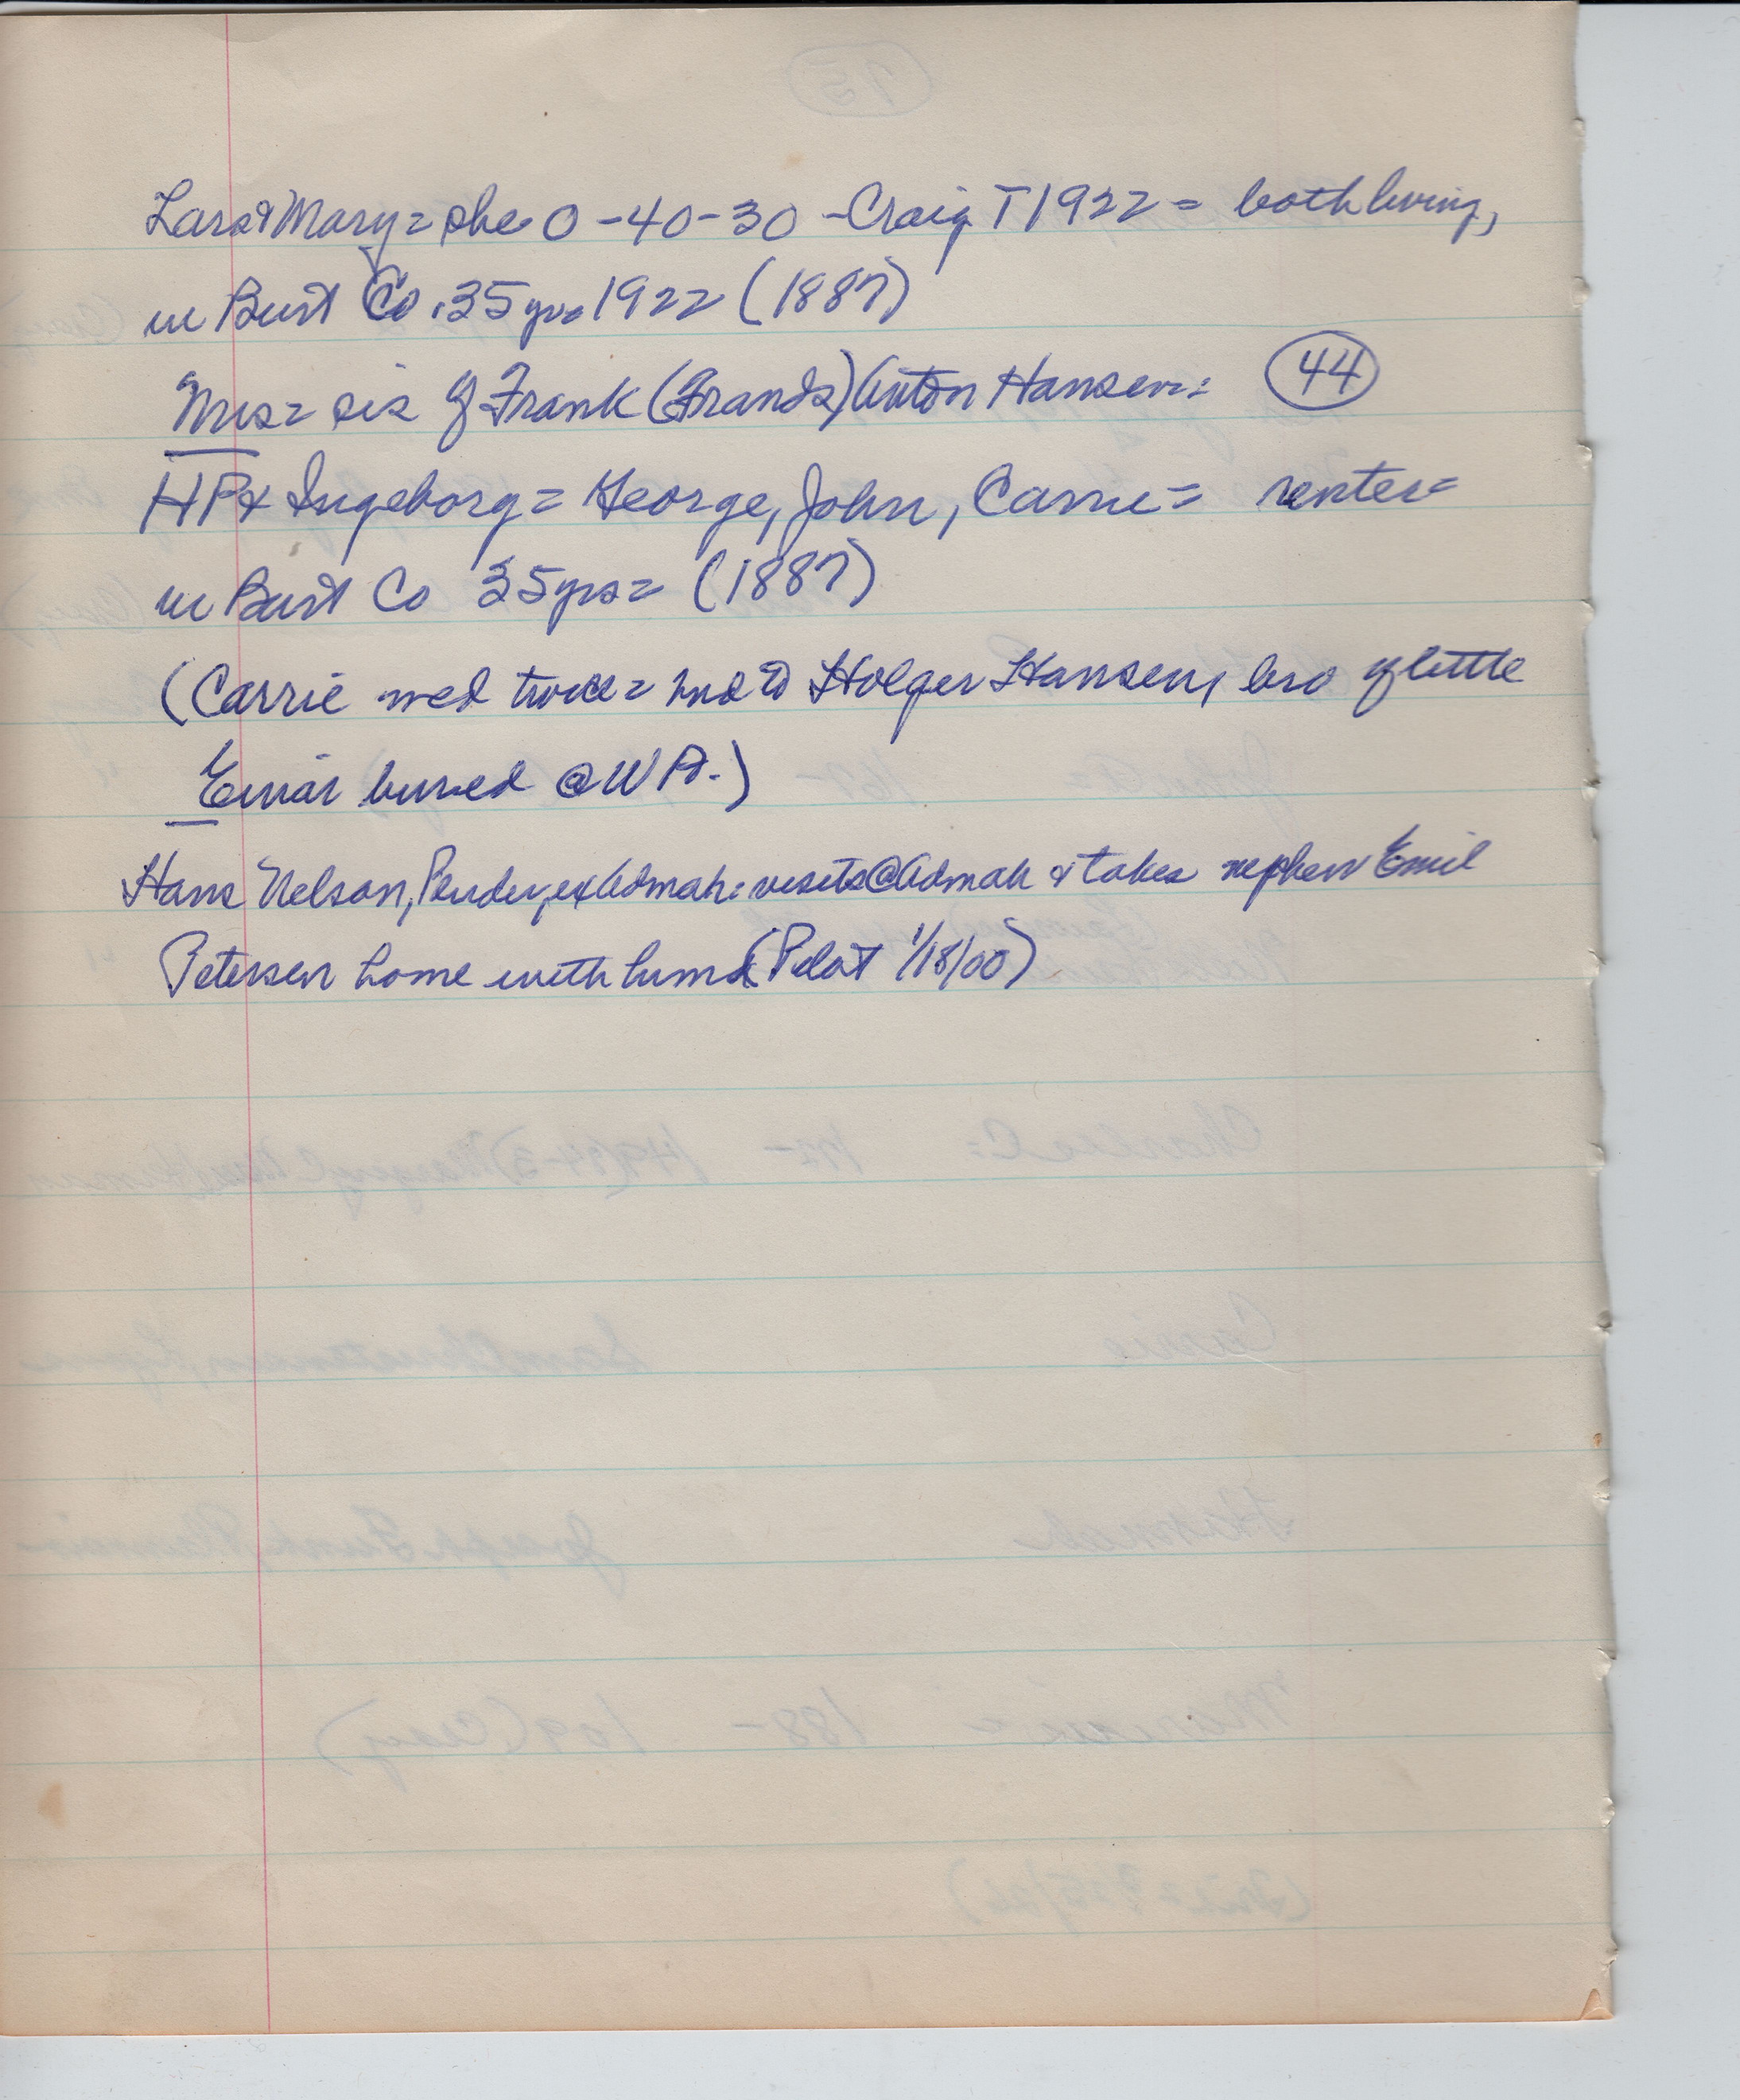 Lars & Mary = she O -40-30 - Craig T 1922 = both living,
in Burt Co. 35 yrs 1922 (1887)
Mrs = sis of Frank (Frands) Anton Hansen: 44
HP & Ingeborg = George, John, Carrie = renter =
in Burt Co 35 yrs = (1887)
(Carrie med twice = 2nd to Holger Hansen, bro of little
Einar buried @ W Pt.)
Hans Nelson, Pender, ex Admah: visits @ Admah & takes nephew Emil
Petersen home with him (Pilot 1/18/00)